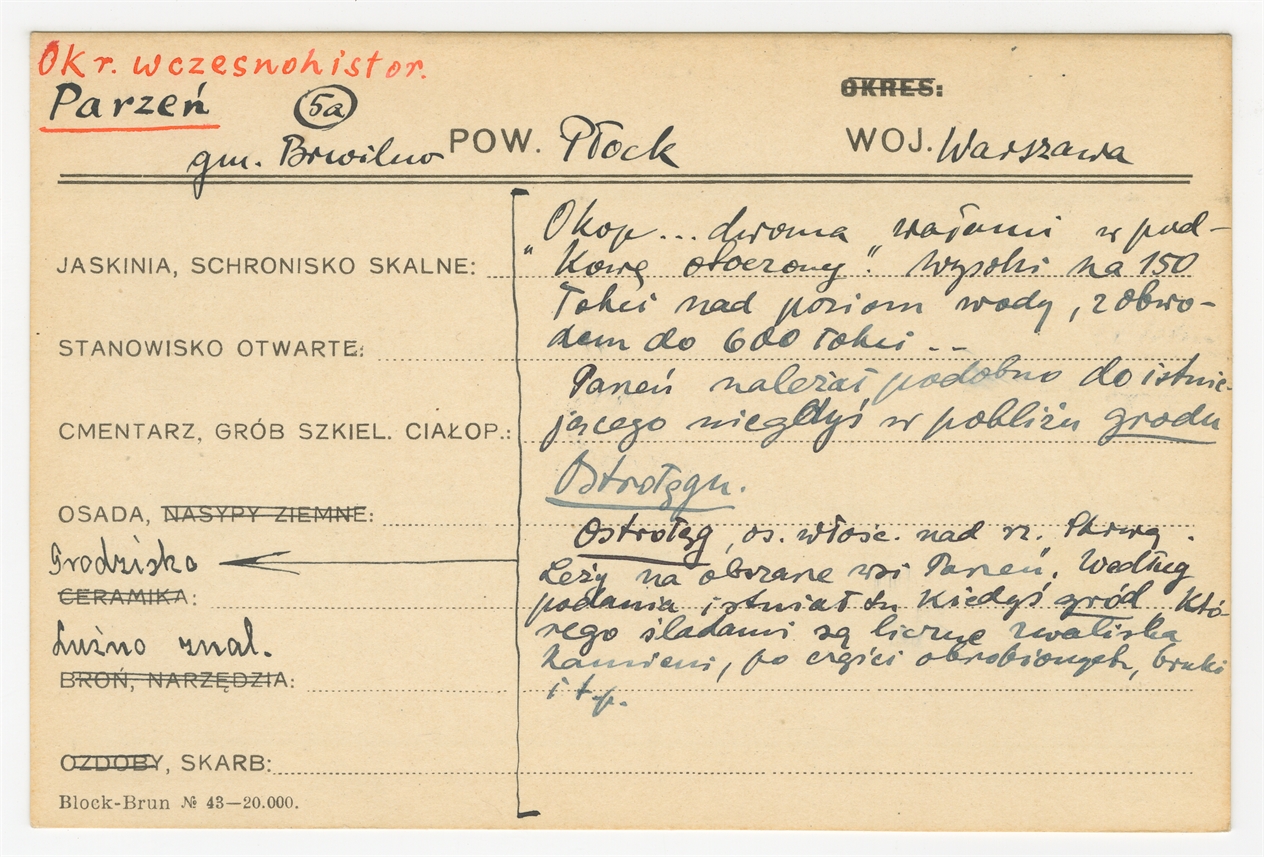 Okr. wczesnohistor.
Parzeń 5a
OKRES:
gm. Brwilno POW. Płock WOJ. Warszawa
JASKINIA, SCHRONISKO SKALNE:
STANOWISKO OTWARTE:
CMENTARZ, GRÓB SZKIEL. CIAŁOP.:
OSADA, NASYPY ZIEMNE:
Grodzisko
CERAMIKA:
Luźno znal.
BROŃ, NARZĘDZIA:
OZDOBY, SKARB:
Block-Brun № 43—20.000.
Okop... dwoma wałami w pod-
"kowę otoczony". Wysoki na 150
łokci nad poziom wody, z obwo-
dem do 600 łokci ..
Parzeń należał podobno do istnie-
jącego niegdyś w pobliżu grodu
Ostrołęgu.
Ostrołęg, os. włośc. nad rz. Skrwą.
Leży na obszarze wsi Parzeń. Według
podania istniał tu kiedyś gród, któ-
rego śladami są liczne zwaliska
kamieni, po części obrobionych, bruki
i t.p.